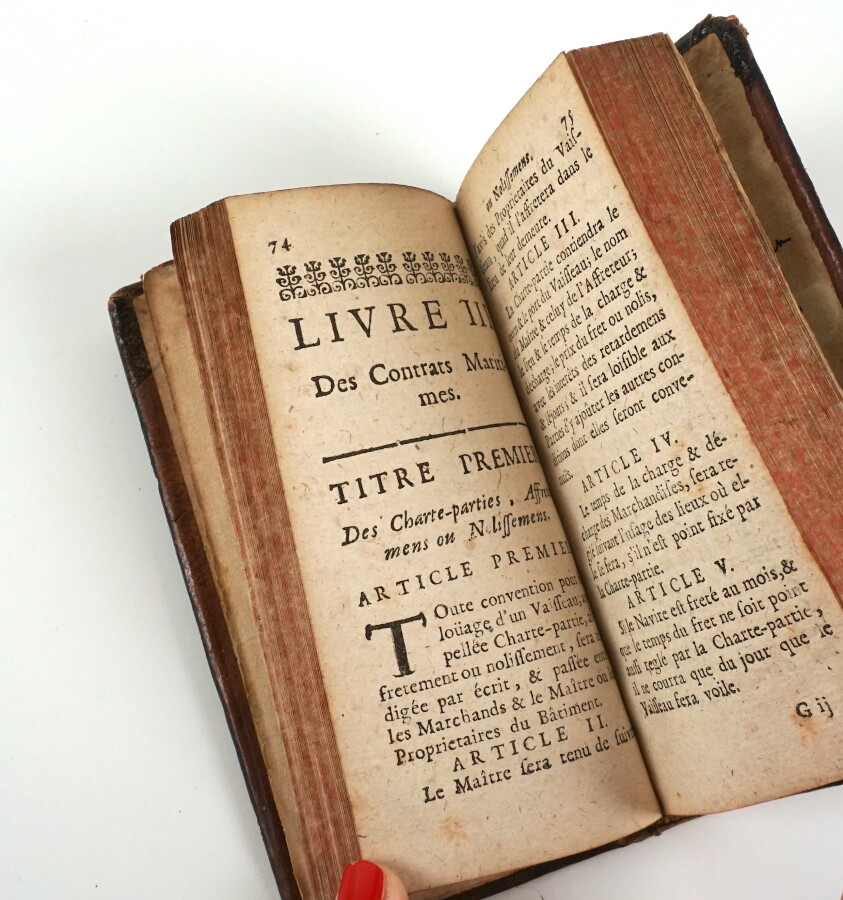 74
LIVRE III
Des Contrats Mariti-
mes.
TITRE PREMIER
Des Charte-parties, Affre-
mens ou Nolissemens.
ARTICLE PREMIER
TOute convention pour
loüage d'un Vaisseau,
pellée Charte-partie,
fretement ou nolissement, sera
digée par écrit, & passée en
les Marchands & le Maître ou
Proprietaires du Bâtiment.
ARTICLE II.
Le Maître sera tenu de suiv
75
ou Nolissemens.
des Proprietaires du Vais-
quand il l'affretera dans le
lieu de leur demeure.
ARTICLE III.
La Charte-partie contiendra le
nom & le port du Vaisseau; le nom
du Maître & celuy de l'Affreteur;
le lieu & le temps de la charge &
décharge; le prix du fret ou nolis,
avec les interêts des retardemens
& sejours; & il sera loisible aux
Parties d'y ajoûter les autres con-
ditions dont elles seront conve-
nuës.
ARTICLE IV.
Le temps de la charge & dé-
charge des Marchandises, sera re-
glé suivant l'usage des lieux où el-
le se fera, s'il n'est point fixé par
la Charte-partie.
ARTICLE V.
Si le Navire est freté au mois, &
que le temps du fret ne soit point
aussi reglé par la Charte-partie,
il ne courra que du jour que le
Vaisseau fera voile.
G ij